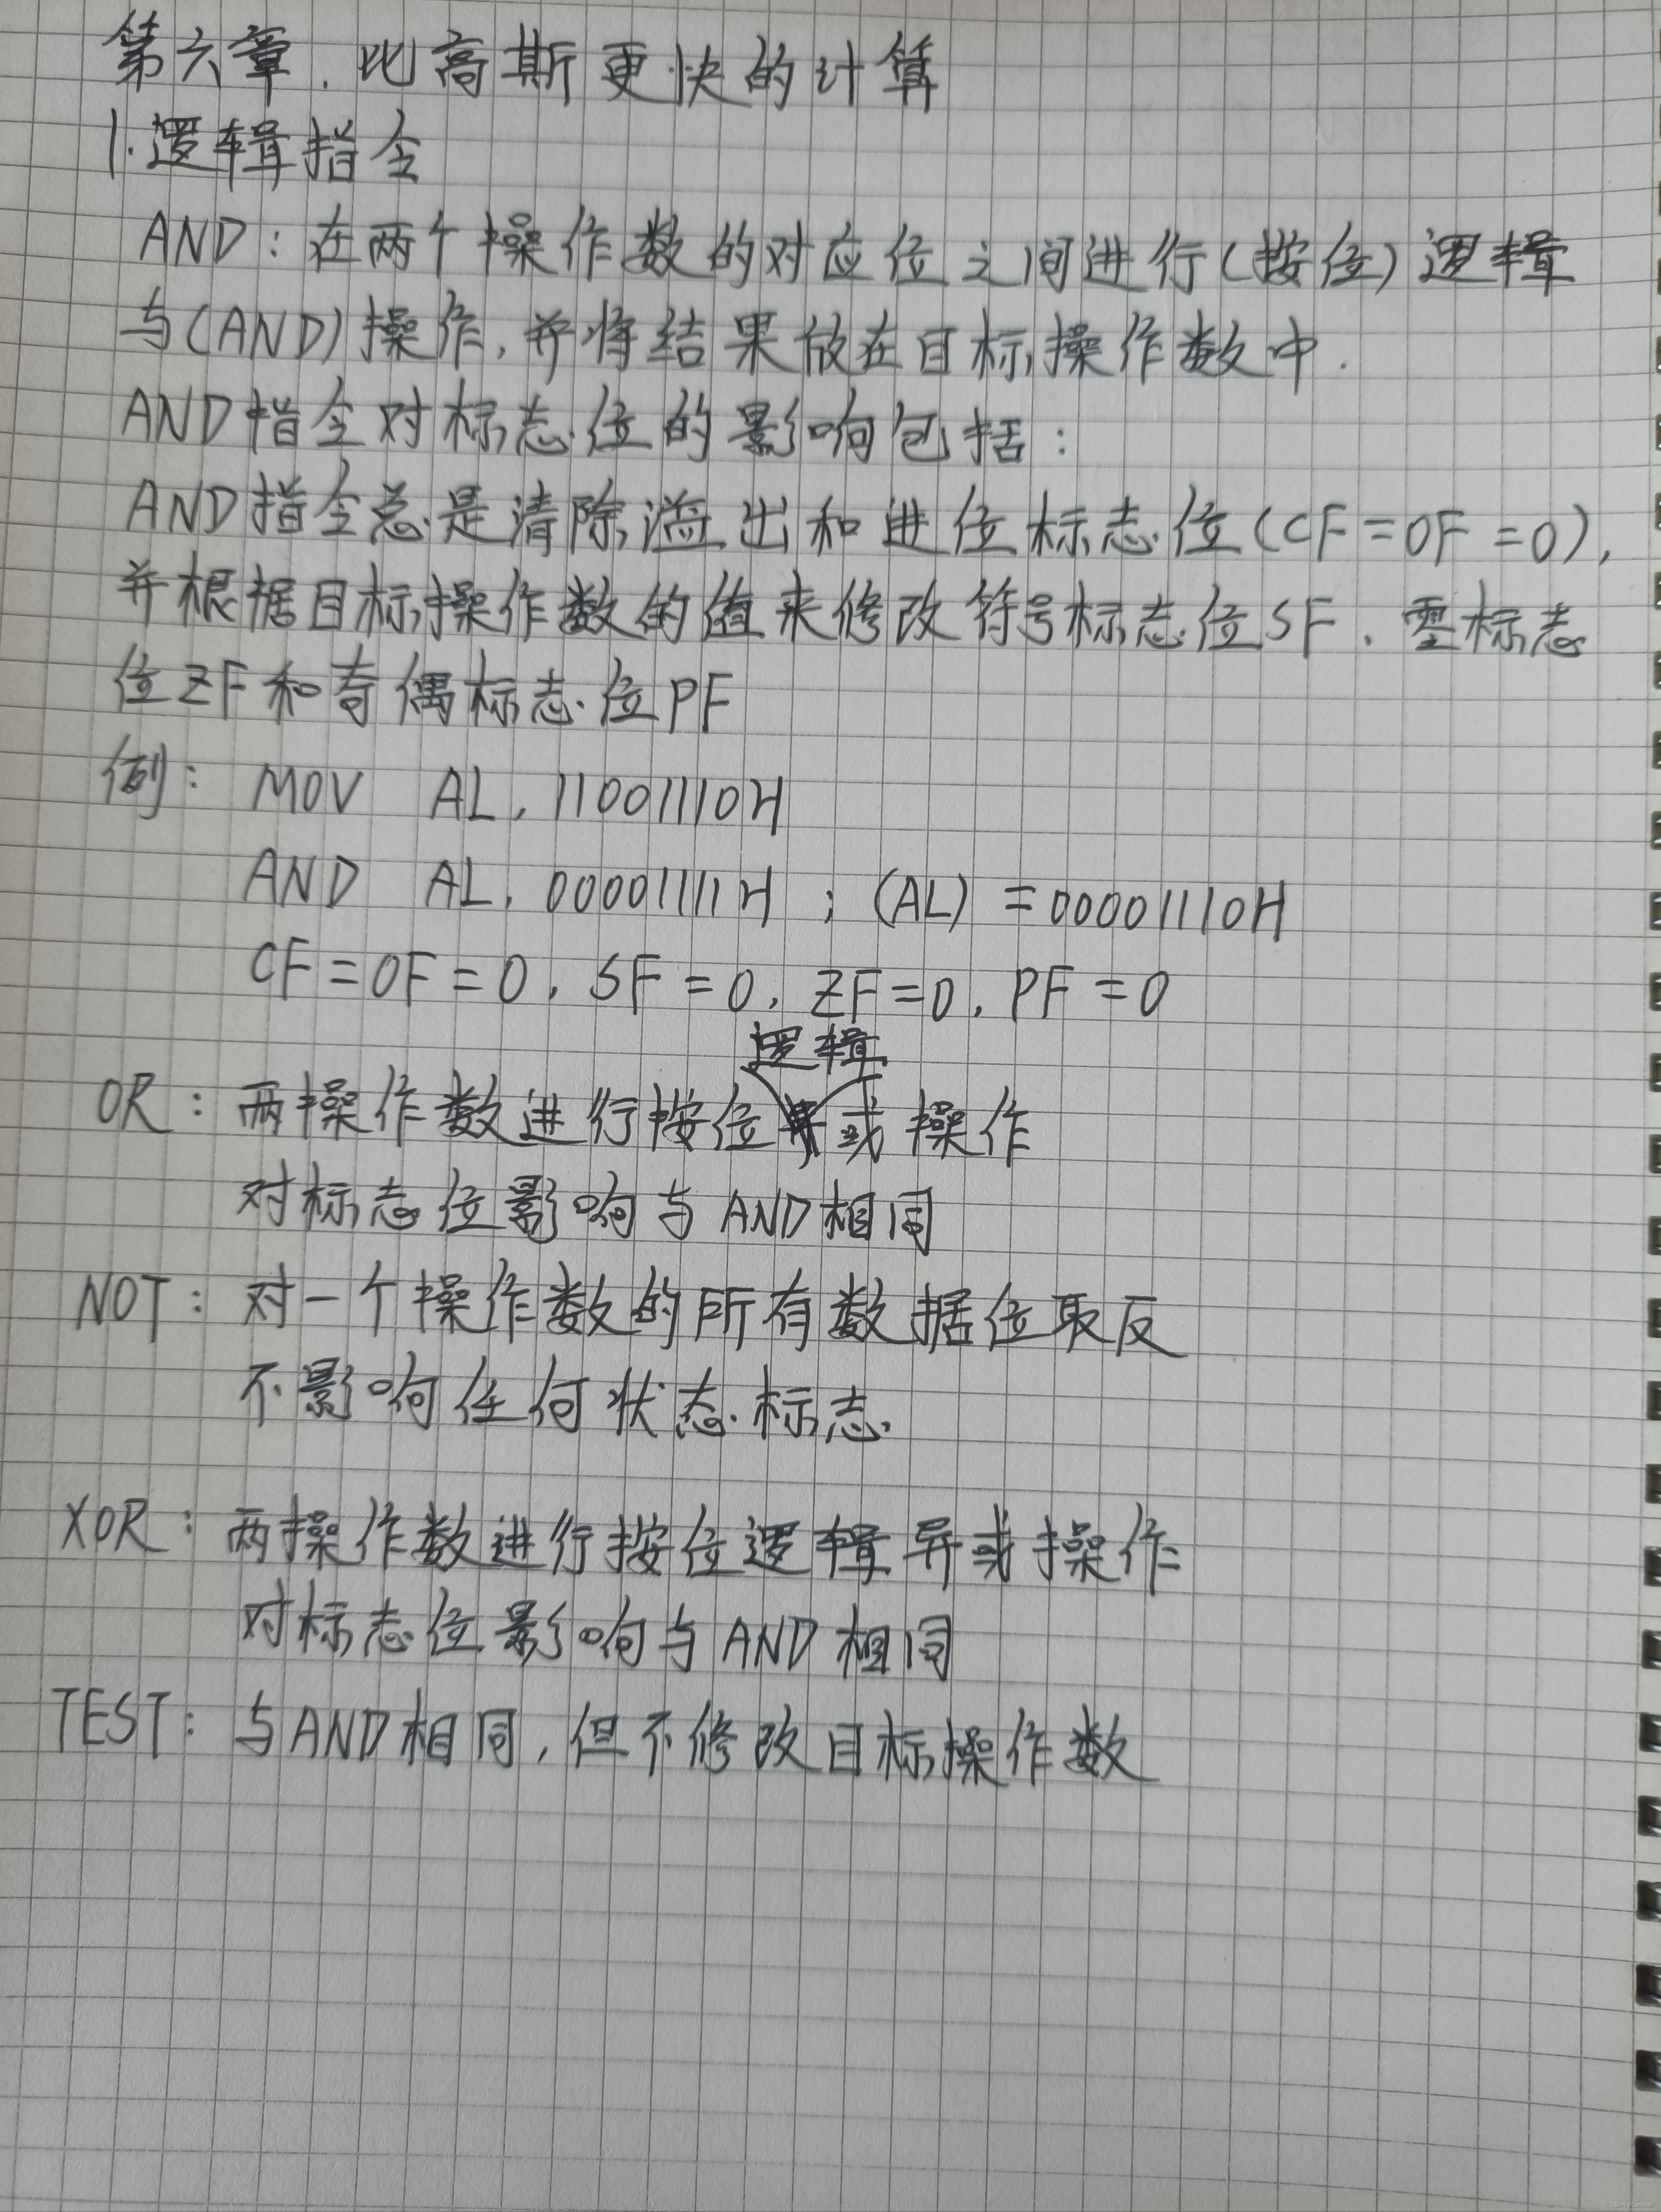 第六章.比高斯更快的计算
1.逻辑指令
AND:在两个操作数的对应位之间进行(按位)逻辑
与(AND)操作,并将结果放在目标操作数中.
AND指令对标志位的影响包括:
AND指令总是清除溢出和进位标志位(CF=OF=0),
并根据目标操作数的值来修改符号标志位SF、零标志
位ZF和奇偶标志位PF
例: MOV AL,11001110H
AND AL,00001111H ; (AL)=00001110H
CF=OF=0,SF=0,ZF=0,PF=0
OR:两操作数进行按位逻辑或操作
对标志位影响与AND相同
NOT:对一个操作数的所有数据位取反
不影响任何状态标志
XOR:两操作数进行按位逻辑异或操作
对标志位影响与AND相同
TEST:与AND相同,但不修改目标操作数